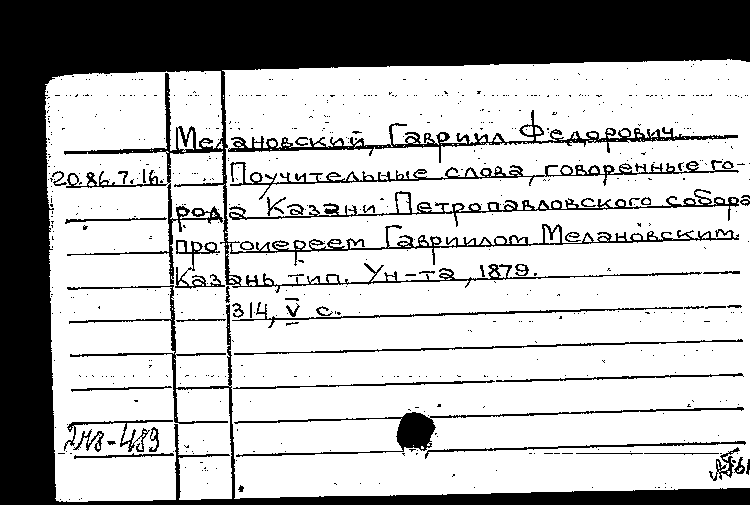 Мелановский, Гавриил Федорович.
20.86.7.16. Поучительные слова, говоренные го-
рода Казани Петропавловского собора
протоиереем Гавриилом Мелановским.
Казань, тип. Ун-та, 1879.
314, V с.